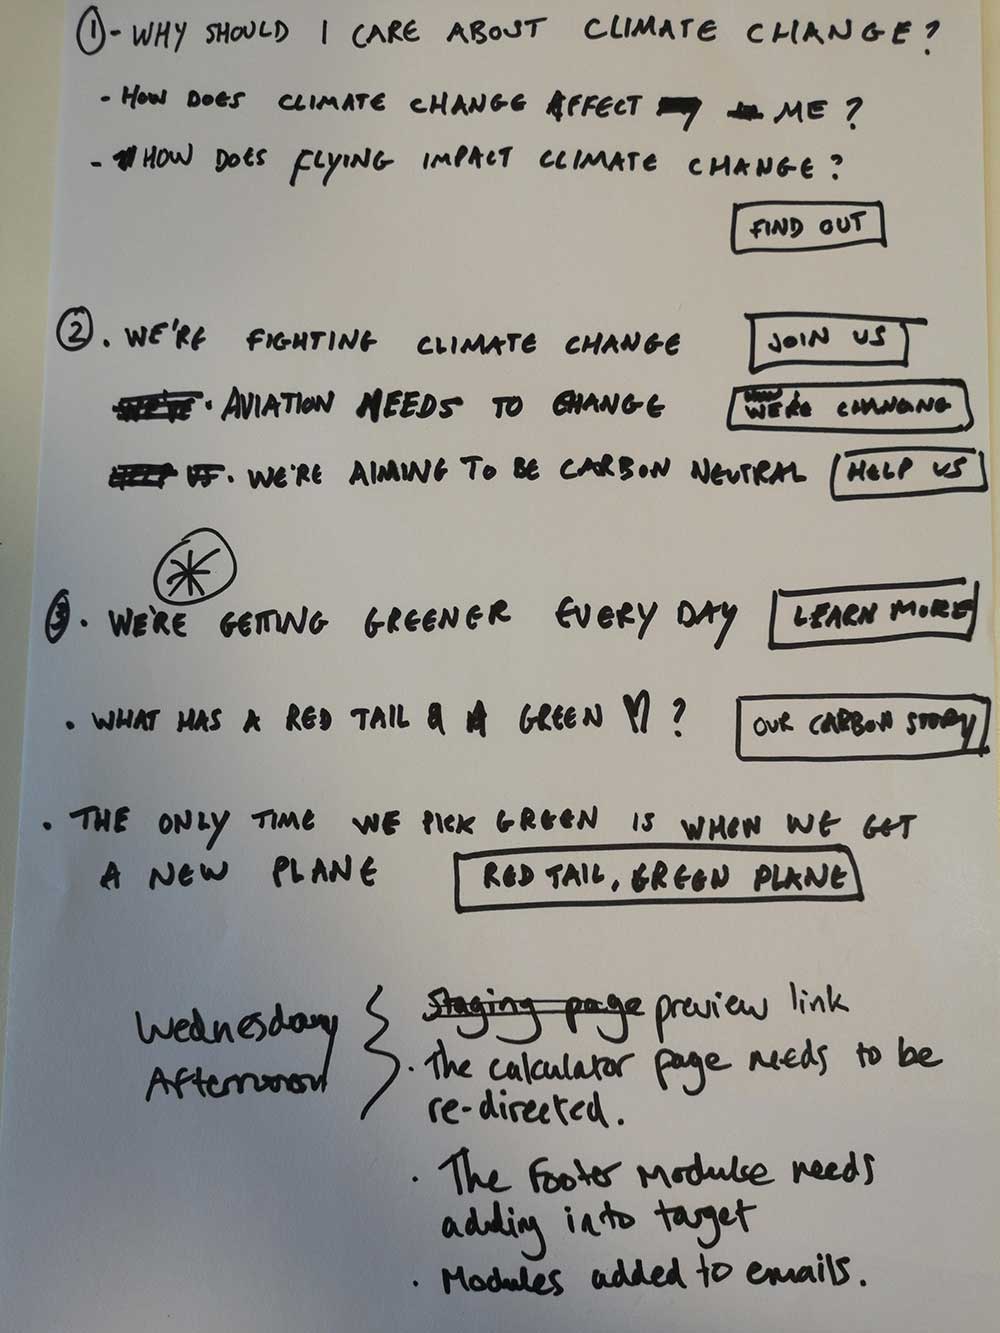 ① - WHY SHOULD I CARE ABOUT CLIMATE CHANGE?
- HOW DOES CLIMATE CHANGE AFFECT ME?
- HOW DOES FLYING IMPACT CLIMATE CHANGE?
FIND OUT
② . WE'RE FIGHTING CLIMATE CHANGE JOIN US
WE'VE . AVIATION NEEDS TO CHANGE WE'RE CHANGING
HELP US . WE'RE AIMING TO BE CARBON NEUTRAL HELP US
*
③ . WE'RE GETTING GREENER EVERY DAY LEARN MORE
. WHAT HAS A RED TAIL & A GREEN ♡? OUR CARBON STORY
. THE ONLY TIME WE PICK GREEN IS WHEN WE GET
A NEW PLANE RED TAIL, GREEN PLANE
Wednesday Staging page preview link
Afternoon . The calculator page needs to be
re-directed.
. The Footer Module needs
adding into target
. Modules added to emails.